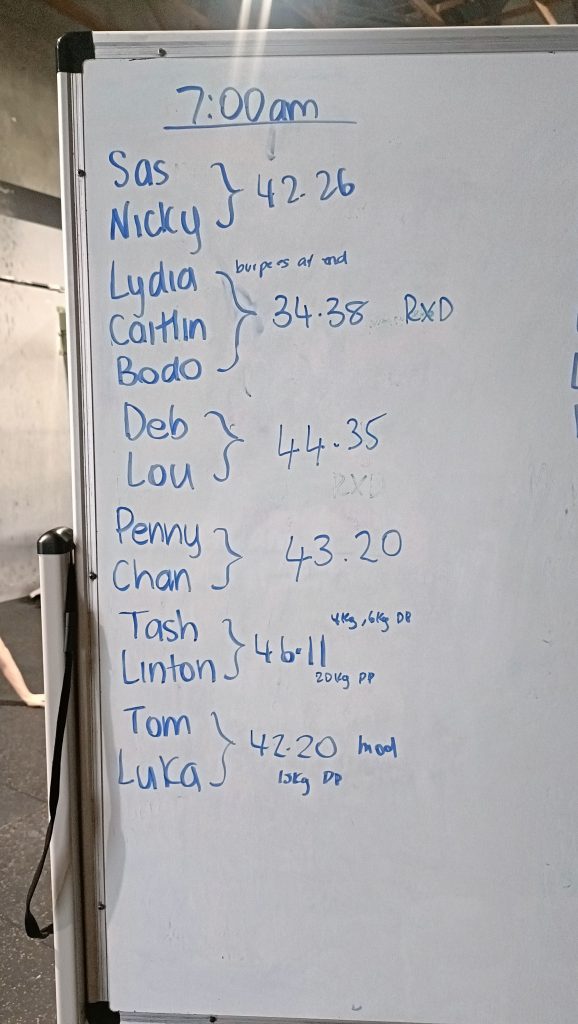 7:00am
Sas
Nicky
42.26
Lydia
Caitlin
Bodo
burpees at end
34.38 RXD
Deb
Lou
44.35
RXD
Penny
Chan
43.20
Tash
Linton
4kg, 6kg DB
46.11
20kg PP
Tom
Luka
42.20 mod
15kg DP